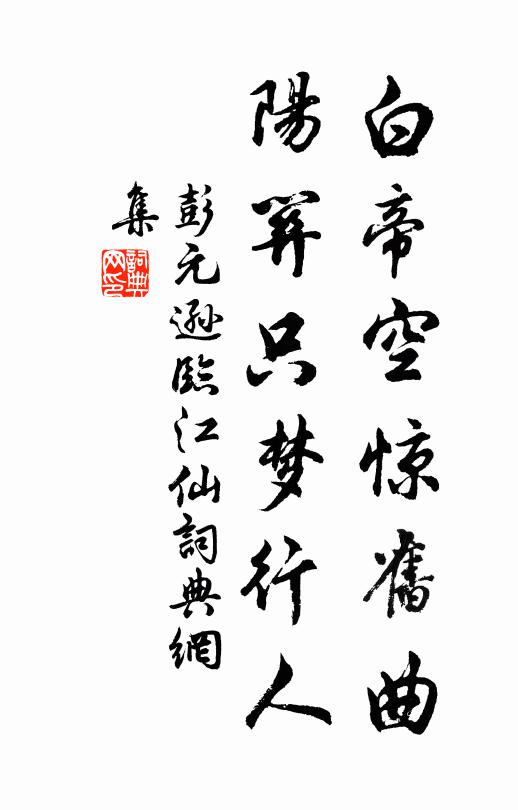 白帝空惊舊曲
陽關只梦行人
彭元遜臨江仙詞典網
集
詞典网印